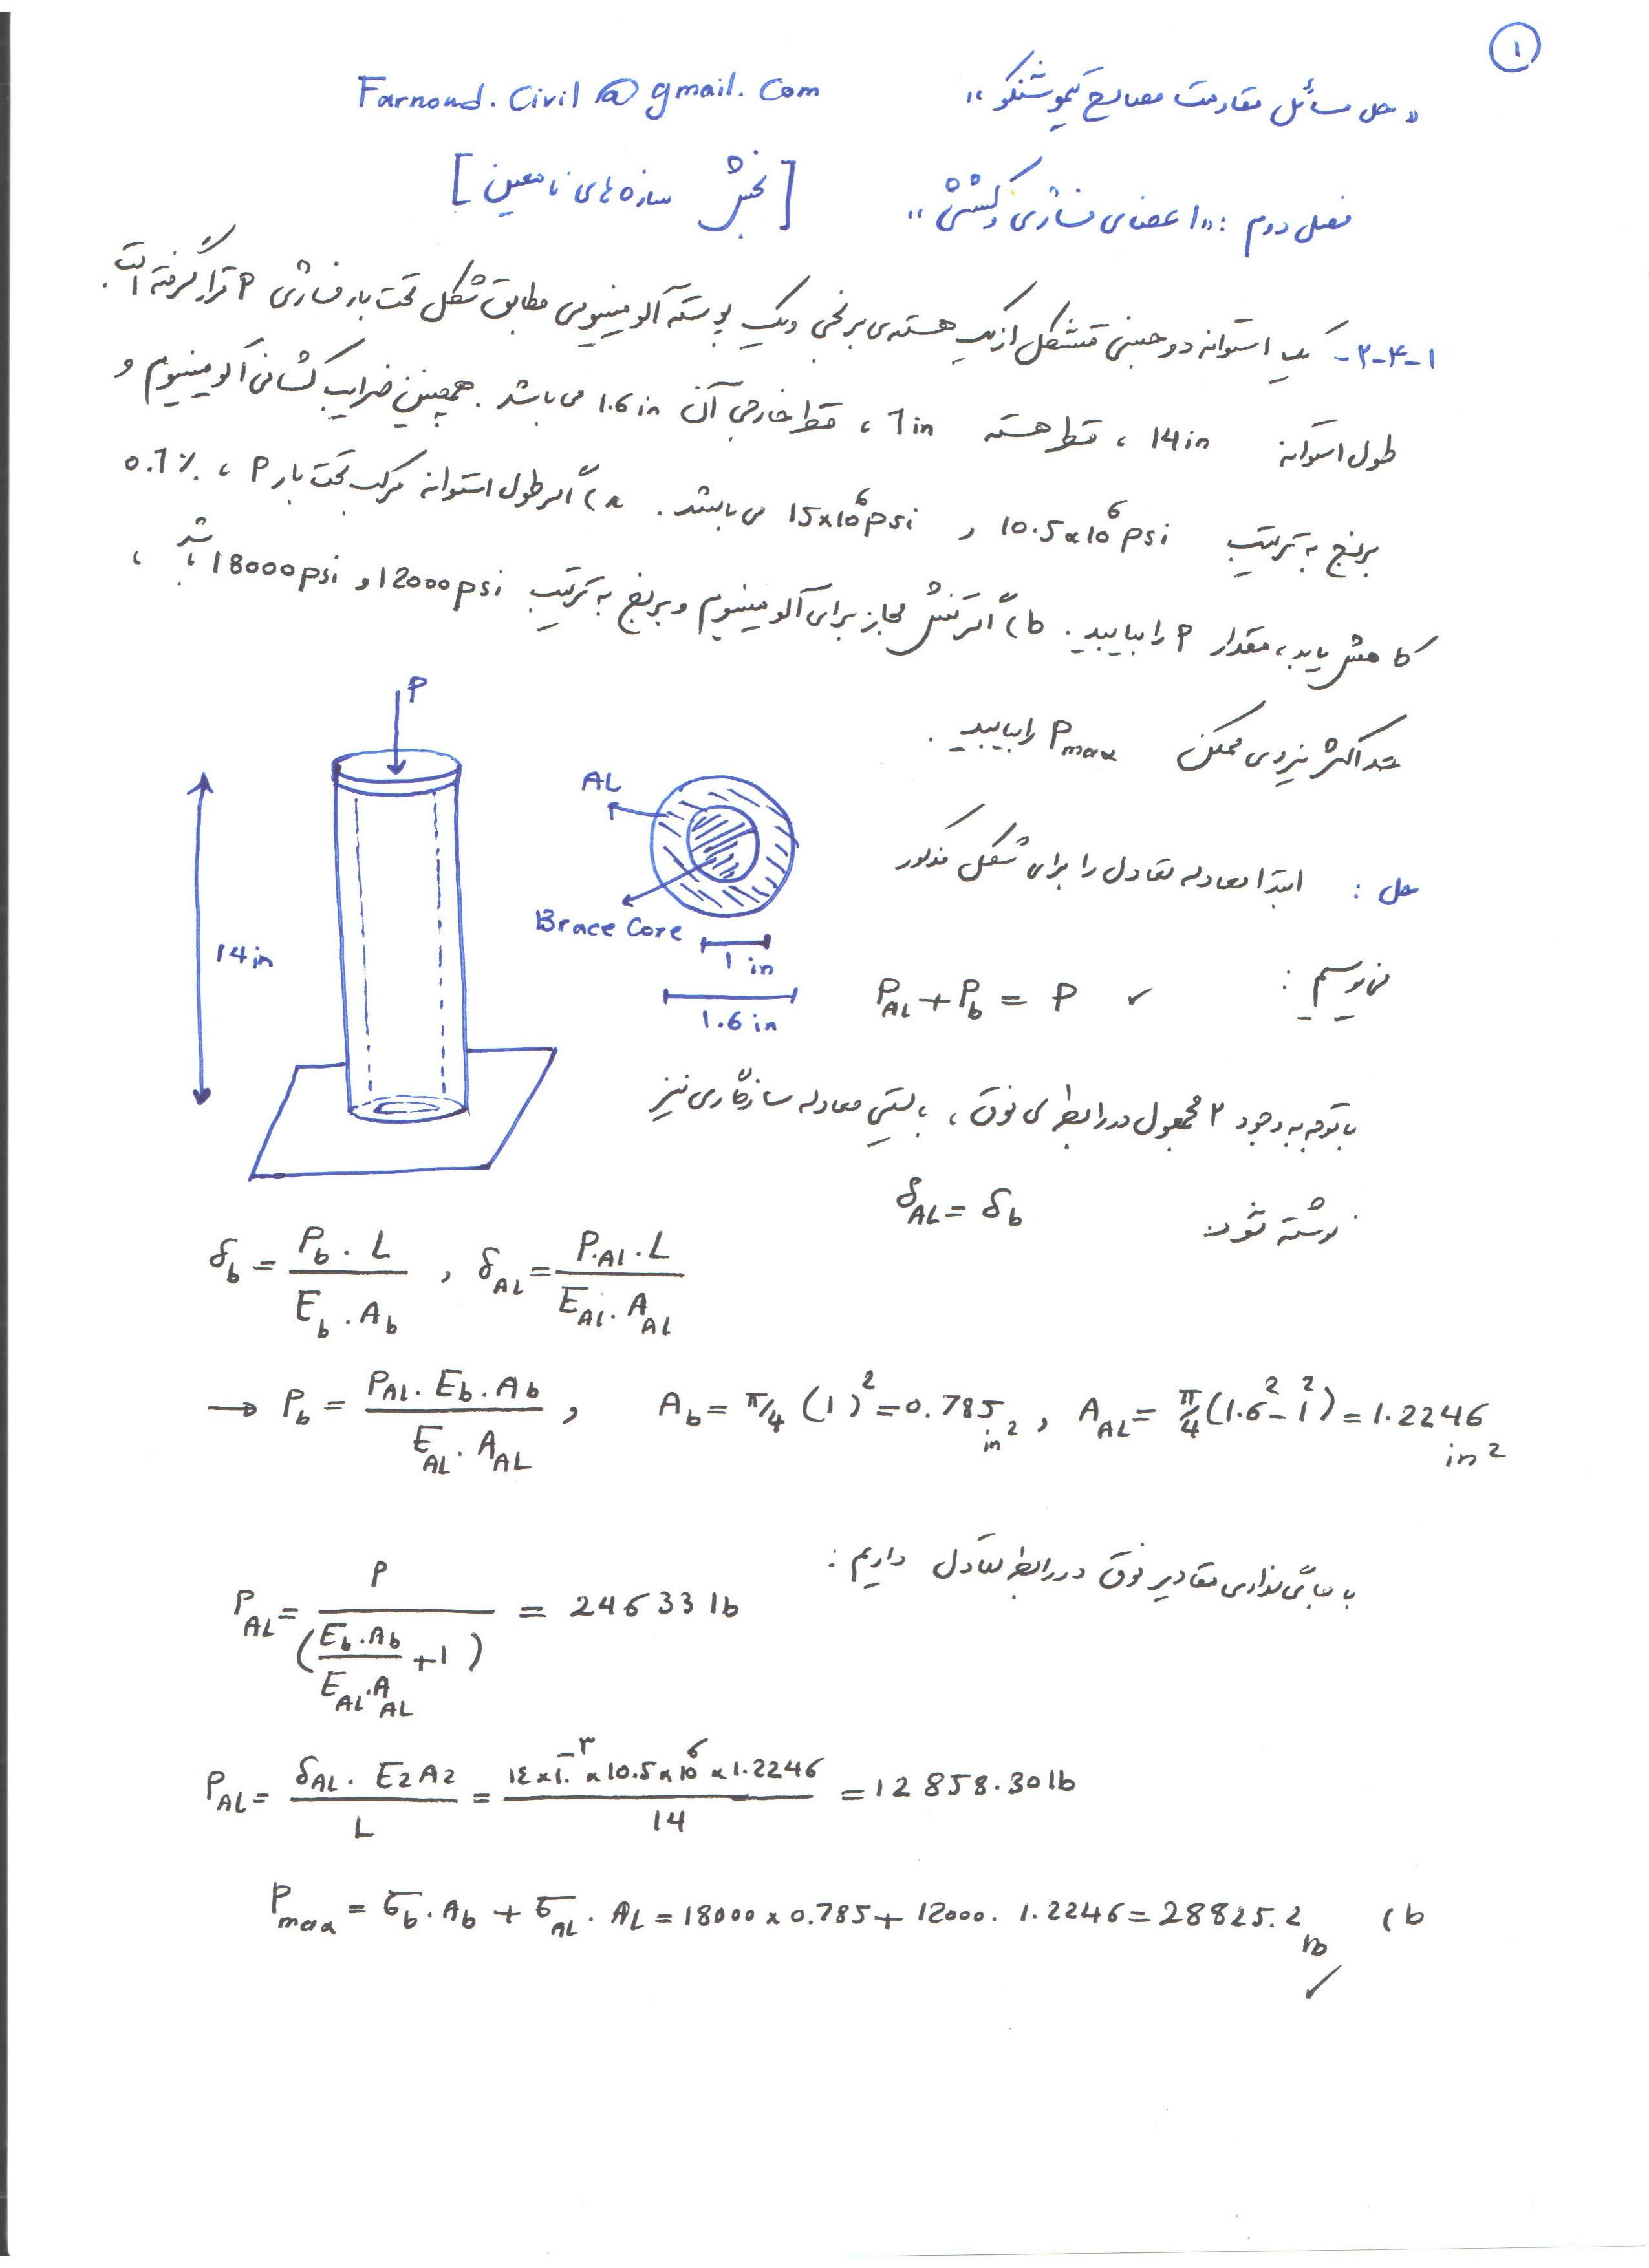 ۱
«حل مسائل مقاومت مصالح تیموشنکو» Farnoud.Civil@gmail.Com
فصل دوم: «اعضای فشاری و کششی» [بخش سازه های نامعین]
۲-۴-۱- یک استوانه دو جنسی متشکل از یک هسته ی برنجی و یک پوسته آلومینیومی مطابق شکل تحت بار فشاری P قرار گرفته است.
طول استوانه 14in ، قطر هسته 1in ، قطر خارجی آن 1.6in می باشد. همچنین ضرایب کشسانی آلومینیوم و
برنج به ترتیب 10.5x10^6 psi و 15x10^6 psi می باشد. a) اگر طول استوانه مرکب تحت بار P ، 0.1%
کاهش یابد، مقدار P را بیابید. b) اگر تنش مجاز برای آلومینیوم و برنج به ترتیب 12000psi و 18000psi باشد ،
حداکثر نیروی ممکن Pmax را بیابید.
P
14in
AL
Brace Core
1 in
1.6 in
حل : ابتدا معادله تعادل را برای شکل مذکور
می نویسیم : P_AL + P_b = P ✓
با توجه به وجود ۲ مجهول در رابطه ی فوق ، بایستی معادله سازگاری نیز
نوشته شود: δ_AL = δ_b
δ_b = P_b . L / E_b . A_b , δ_AL = P.Al . L / E_Al . A_AL
→ P_b = P_AL . E_b . A_b / E_AL . A_AL , A_b = π/4 (1)^2 = 0.785 in^2 , A_AL = π/4 (1.6^2 - 1^2) = 1.2246 in^2
با جایگذاری مقادیر فوق در رابطه تعادل داریم :
P_AL = P / (E_b . A_b / E_AL . A_AL + 1) = 24633 lb
P_AL = δ_AL . E2A2 / L = ۱٤x۱۰^-۳ x 10.5x10^6 x 1.2246 / 14 = 12858.30 lb
b) P_max = σ_b . A_b + σ_AL . AL = 18000 x 0.785 + 12000 . 1.2246 = 28825.2 lb ✓